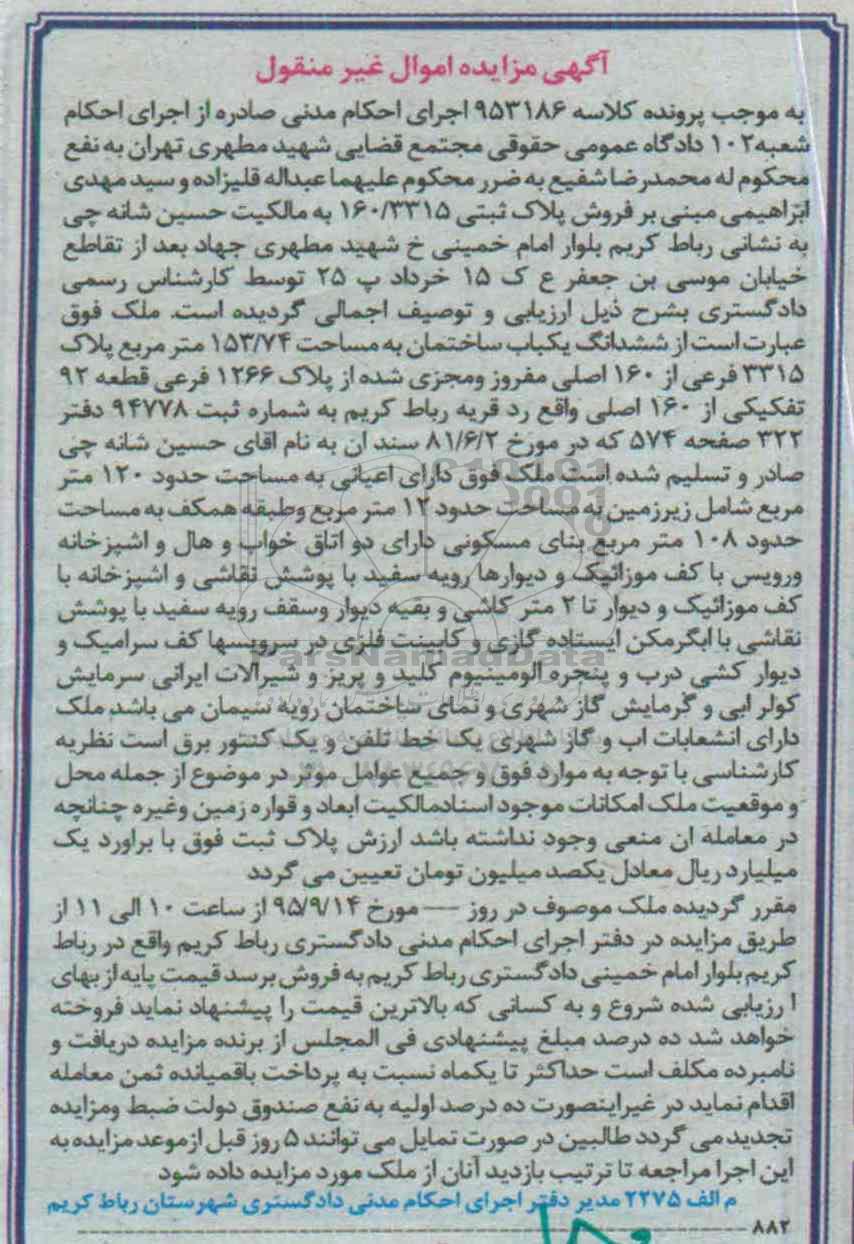 آگهی مزایده اموال غیر منقول
به موجب پرونده کلاسه ۹۵۳۱۸۶ اجرای احکام مدنی صادره از اجرای احکام
شعبه۱۰۲ دادگاه عمومی حقوقی مجتمع قضایی شهید مطهری تهران به نفع
محکوم له محمدرضا شفیع به ضرر محکوم علیهما عبداله قلیزاده و سید مهدی
ابراهیمی مبنی بر فروش پلاک ثبتی ۱۶۰/۳۳۱۵ به مالکیت حسین شانه چی
به نشانی رباط کریم بلوار امام خمینی خ شهید مطهری جهاد بعد از تقاطع
خیابان موسی بن جعفر ع ک ۱۵ خرداد پ ۲۵ توسط کارشناس رسمی
دادگستری بشرح ذیل ارزیابی و توصیف اجمالی گردیده است. ملک فوق
عبارت است از ششدانگ یکباب ساختمان به مساحت ۱۵۳/۷۴ متر مربع پلاک
۳۳۱۵ فرعی از ۱۶۰ اصلی مفروز ومجزی شده از پلاک ۱۲۶۶ فرعی قطعه ۹۲
تفکیکی از ۱۶۰ اصلی واقع رد قریه رباط کریم به شماره ثبت ۹۴۷۷۸ دفتر
۳۲۲ صفحه ۵۷۴ که در مورخ ۸۱/۶/۲ سند ان به نام اقای حسین شانه چی
صادر و تسلیم شده است ملک فوق دارای اعیانی به مساحت حدود ۱۲۰ متر
مربع شامل زیرزمین به مساحت حدود ۱۲ متر مربع وطبقه همکف به مساحت
حدود ۱۰۸ متر مربع بنای مسکونی دارای دو اتاق خواب و هال و اشپزخانه
ورویس با کف موزائیک و دیوارها رویه سفید با پوشش نقاشی و اشپزخانه با
کف موزائیک و دیوار تا ۲ متر کاشی و بقیه دیوار وسقف رویه سفید با پوشش
نقاشی با ابگرمکن ایستاده گازی و کابینت فلزی در سرویسها کف سرامیک و
دیوار کشی درب و پنجره الومینیوم کلید و پریز و شیرآلات ایرانی سرمایش
کولر ابی و گرمایش گاز شهری و نمای ساختمان رویه سیمان می باشد ملک
دارای انشعابات اب و گاز شهری یک خط تلفن و یک کنتور برق است نظریه
کارشناسی با توجه به موارد فوق و جمیع عوامل موثر در موضوع از جمله محل
و موقعیت ملک امکانات موجود اسنادمالکیت ابعاد و قواره زمین وغیره چنانچه
در معامله ان منعی وجود نداشته باشد ارزش پلاک ثبت فوق با براورد یک
میلیارد ریال معادل یکصد میلیون تومان تعیین می گردد
مقرر گردیده ملک موصوف در روز --- مورخ ۹۵/۹/۱۴ از ساعت ۱۰ الی ۱۱ از
طریق مزایده در دفتر اجرای احکام مدنی دادگستری رباط کریم واقع در رباط
کریم بلوار امام خمینی دادگستری رباط کریم به فروش برسد قیمت پایه از بهای
ا رزیابی شده شروع و به کسانی که بالاترین قیمت را پیشنهاد نماید فروخته
خواهد شد ده درصد مبلغ پیشنهادی فی المجلس از برنده مزایده دریافت و
نامبرده مکلف است حداکثر تا یکماه نسبت به پرداخت باقمیانده ثمن معامله
اقدام نماید در غیراینصورت ده درصد اولیه به نفع صندوق دولت ضبط ومزایده
تجدید می گردد طالبین در صورت تمایل می توانند ۵ روز قبل از موعد مزایده به
این اجرا مراجعه تا ترتیب بازدید آنان از ملک مورد مزایده داده شود
م الف ۲۲۷۵ مدیر دفتر اجرای احکام مدنی دادگستری شهرستان رباط کریم
۸۸۲
ParsNamadData